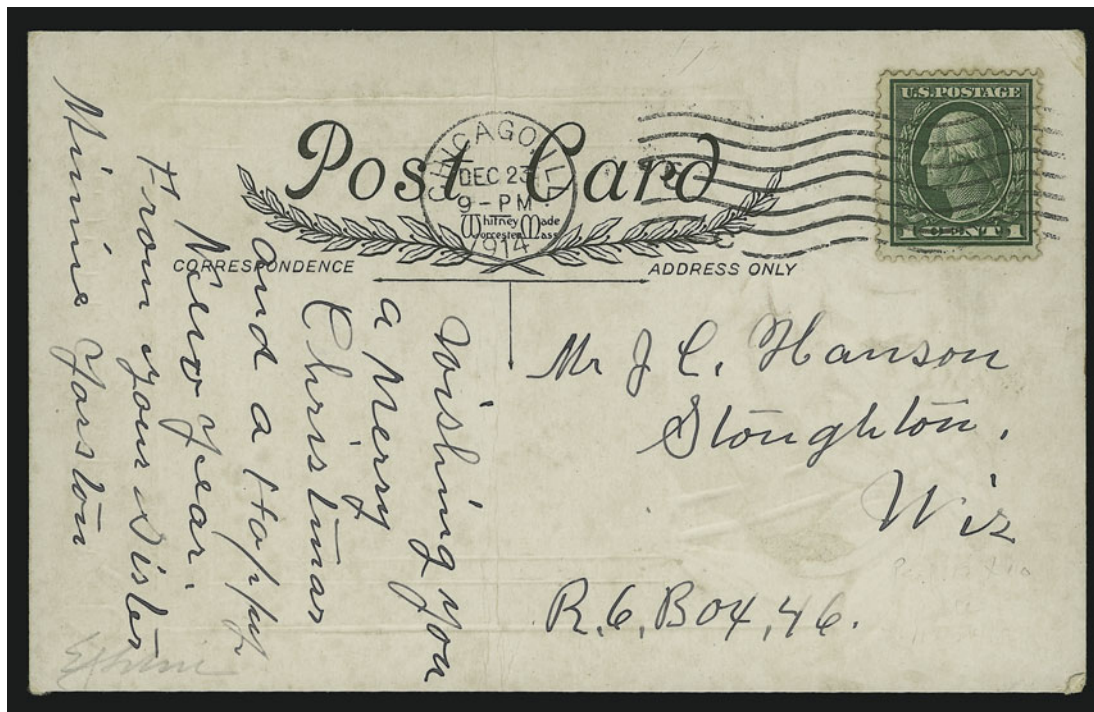 Post Card
CHICAGO, ILL.
DEC 23
9-PM
1914
Whitney Made
Worcester Mass
U.S. POSTAGE
1 CENT 1
CORRESPONDENCE
ADDRESS ONLY
Wishing you
a Merry
Christmas
and a Happy
New Year.
From your Sister
Minnie
Mr J. C. Hanson
Stoughton,
Wis
R.6, Box, 46.